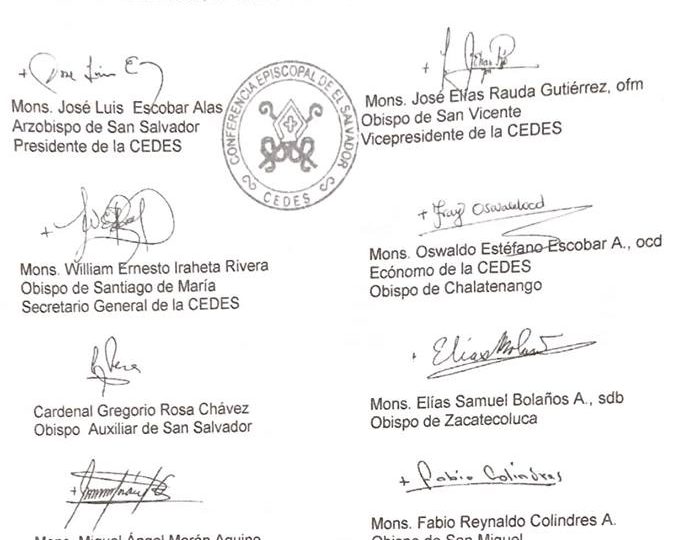 + Jose Luis E
Mons. José Luis Escobar Alas
Arzobispo de San Salvador
Presidente de la CEDES
CONFERENCIA EPISCOPAL DE EL SALVADOR
CEDES
+
Mons. José Elías Rauda Gutiérrez, ofm
Obispo de San Vicente
Vicepresidente de la CEDES
+
Mons. William Ernesto Iraheta Rivera
Obispo de Santiago de María
Secretario General de la CEDES
+ Fray Oswaldo ocd
Mons. Oswaldo Estéfano Escobar A., ocd
Ecónomo de la CEDES
Obispo de Chalatenango
Cardenal Gregorio Rosa Chávez
Obispo Auxiliar de San Salvador
Elías Bolaños
Mons. Elías Samuel Bolaños A., sdb
Obispo de Zacatecoluca
+
Mons. Miguel Ángel Morán Aquino
+ Fabio Colindres
Mons. Fabio Reynaldo Colindres A.
Obispo de San Miguel